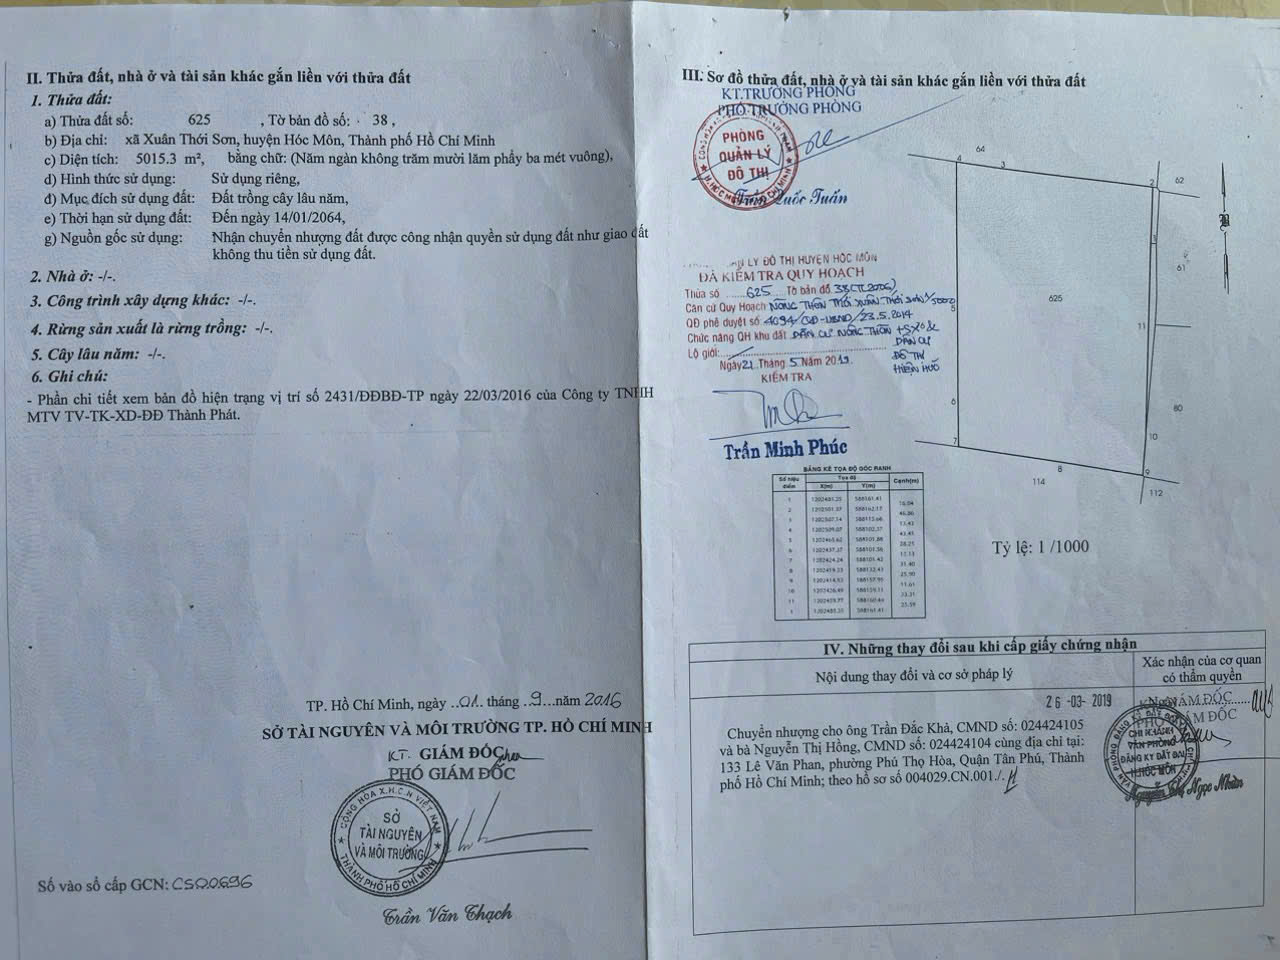 II. Thửa đất, nhà ở và tài sản khác gắn liền với thửa đất
1. Thửa đất:
a) Thửa đất số: 625 , Tờ bản đồ số: 38 ,
b) Địa chỉ: xã Xuân Thới Sơn, huyện Hóc Môn, Thành phố Hồ Chí Minh
c) Diện tích: 5015.3 m², bằng chữ: (Năm ngàn không trăm mười lăm phẩy ba mét vuông),
d) Hình thức sử dụng: Sử dụng riêng,
đ) Mục đích sử dụng đất: Đất trồng cây lâu năm,
e) Thời hạn sử dụng đất: Đến ngày 14/01/2064,
g) Nguồn gốc sử dụng: Nhận chuyển nhượng đất được công nhận quyền sử dụng đất như giao đất
không thu tiền sử dụng đất.
2. Nhà ở: -/-.
3. Công trình xây dựng khác: -/-.
4. Rừng sản xuất là rừng trồng: -/-.
5. Cây lâu năm: -/-.
6. Ghi chú:
- Phần chi tiết xem bản đồ hiện trạng vị trí số 2431/ĐĐBĐ-TP ngày 22/03/2016 của Công ty TNHH
MTV TV-TK-XD-ĐĐ Thành Phát.
TP. Hồ Chí Minh, ngày ..01. tháng .9...năm 2016
SỞ TÀI NGUYÊN VÀ MÔI TRƯỜNG TP. HỒ CHÍ MINH
KT. GIÁM ĐỐC
PHÓ GIÁM ĐỐC
CỘNG HÒA X.H.C.N VIỆT NAM
SỞ
TÀI NGUYÊN
VÀ MÔI TRƯỜNG
THÀNH PHỐ HỒ CHÍ MINH
Trần Văn Thạch
Số vào sổ cấp GCN: CS00696
III. Sơ đồ thửa đất, nhà ở và tài sản khác gắn liền với thửa đất
KT.TRƯỞNG PHÒNG
PHÓ TRƯỞNG PHÒNG
PHÒNG
QUẢN LÝ
ĐÔ THỊ
Trần Quốc Tuấn
LÝ ĐÔ THỊ HUYỆN HÓC MÔN
ĐÃ KIỂM TRA QUY HOẠCH
Thửa số ......625... Tờ bản đồ 38(TL2006)
Căn cứ Quy Hoạch NÔNG THÔN MỚI XUÂN THỚI SƠN 1/5000
QĐ phê duyệt số 4094/QĐ-UBND/23.5.2014
Chức năng QH khu đất DÂN CƯ NÔNG THÔN
DÂN CƯ
Lộ giới:
ĐÔ THỊ
HIỆN HỮU
Ngày 21 Tháng 5 Năm 2019
KIỂM TRA
Trần Minh Phúc
64
4
3
2
62
1
61
625
5
11
6
80
7
10
8
9
114
112
BẢNG KÊ TỌA ĐỘ GÓC RANH
Số hiệu điểm Tọa độ Cạnh(m)
X(m) Y(m)
1
2
3
4
5
6
7
8
9
10
11
1
Tỷ lệ: 1 /1000
IV. Những thay đổi sau khi cấp giấy chứng nhận
Nội dung thay đổi và cơ sở pháp lý
Xác nhận của cơ quan
có thẩm quyền
26 -03- 2019
Chuyển nhượng cho ông Trần Đắc Khả, CMND số: 024424105
và bà Nguyễn Thị Hồng, CMND số: 024424104 cùng địa chỉ tại:
133 Lê Văn Phan, phường Phú Thọ Hòa, Quận Tân Phú, Thành
phố Hồ Chí Minh; theo hồ sơ số 004029.CN.001./.
GIÁM ĐỐC
PHÓ GIÁM ĐỐC
CHI NHÁNH
VĂN PHÒNG
ĐĂNG KÝ ĐẤT ĐAI
H.HÓC MÔN
Nguyễn Thị Ngọc Nhàn